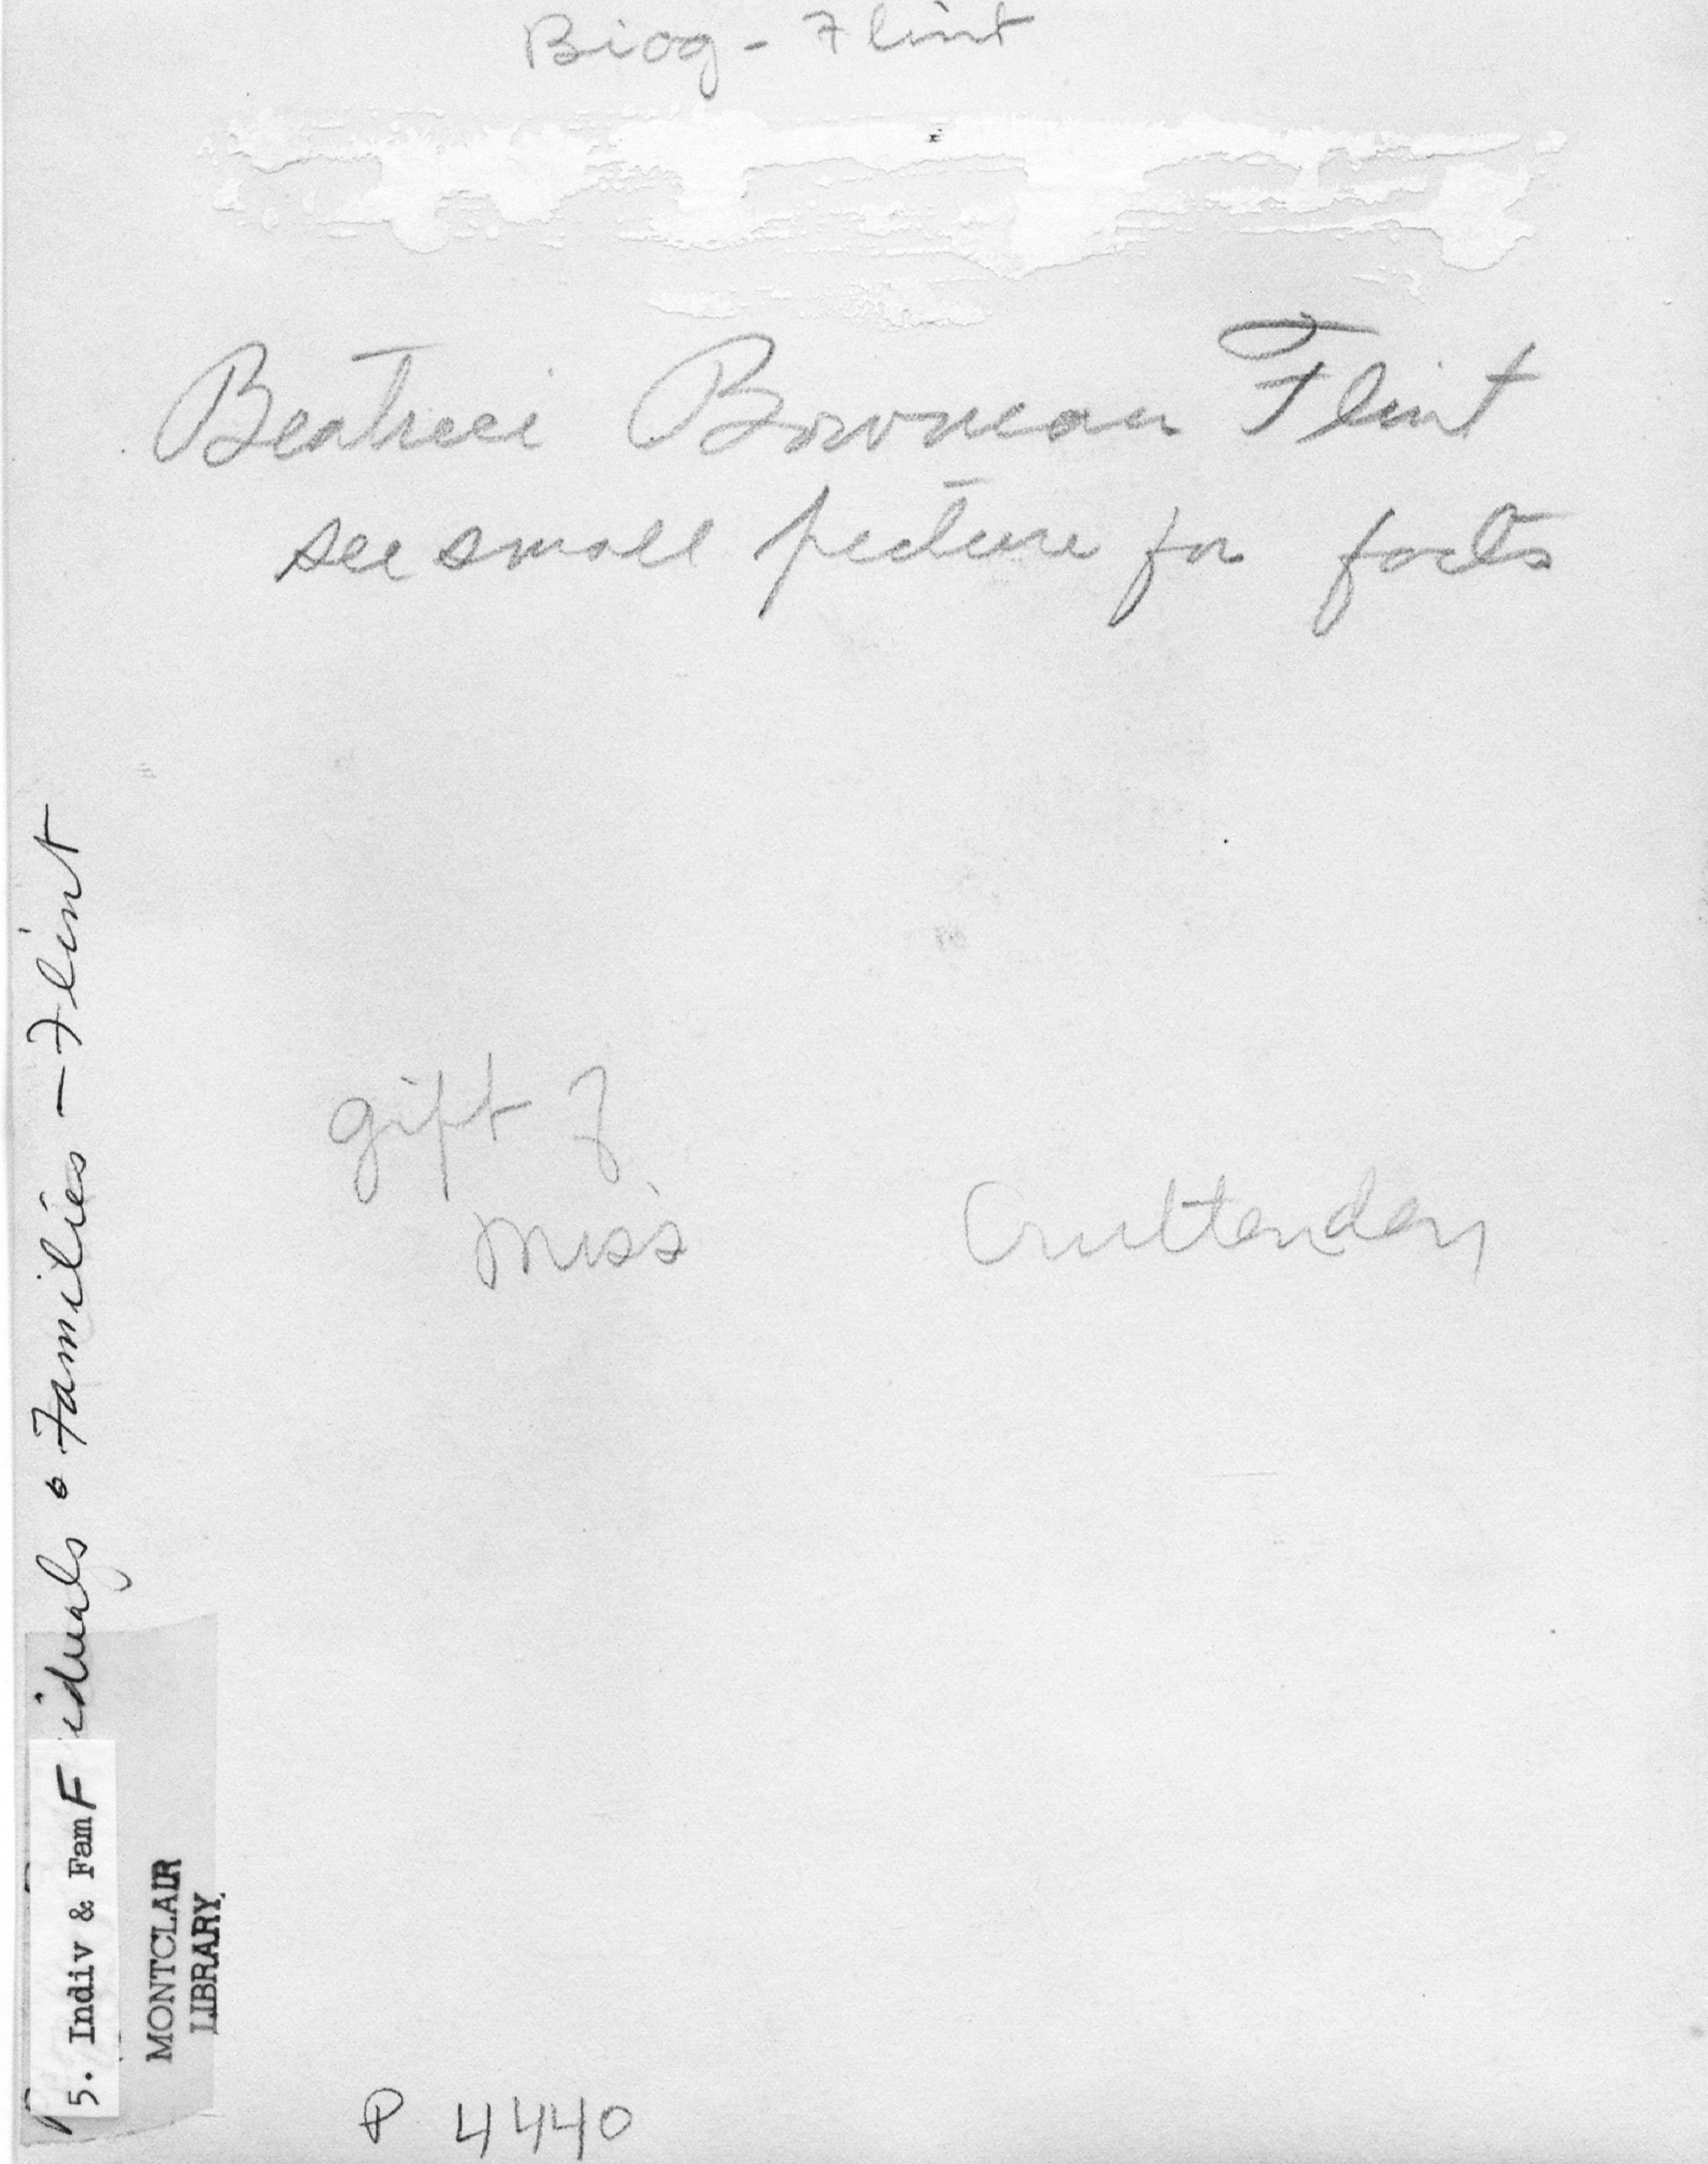 Biog - Flint
Beatrice Bowman Flint
see small picture for facts
gift of
Miss Cruttenden
iduals & Families - Flint
5. Indiv & Fam F
MONTCLAIR
LIBRARY
P 4440